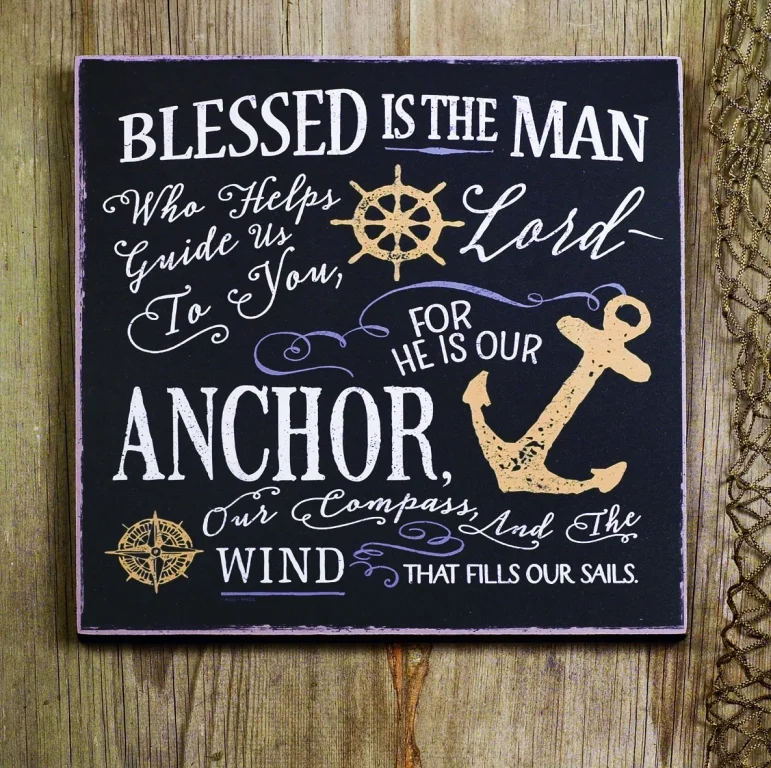 BLESSED IS THE MAN
Who Helps
Guide Us
To You,
Lord-
FOR
HE IS OUR
ANCHOR,
Our Compass, And The
WIND THAT FILLS OUR SAILS.